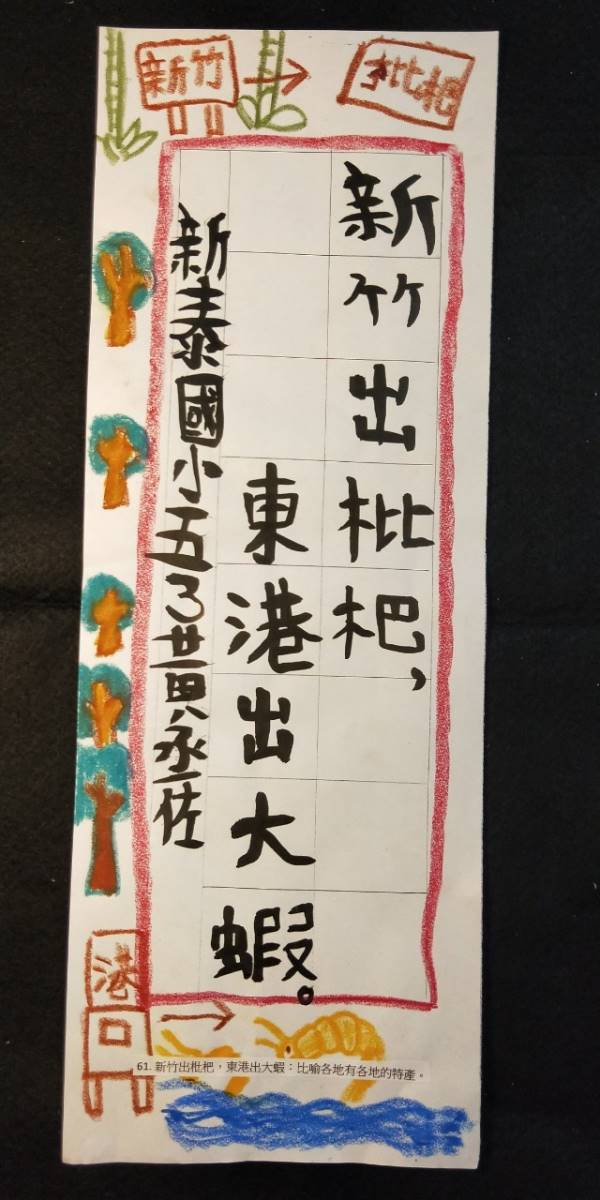 新竹
枇杷
新竹出枇杷,
東港出大蝦。
新泰國小五3黃丞佐
港
61. 新竹出枇杷，東港出大蝦：比喻各地有各地的特產。